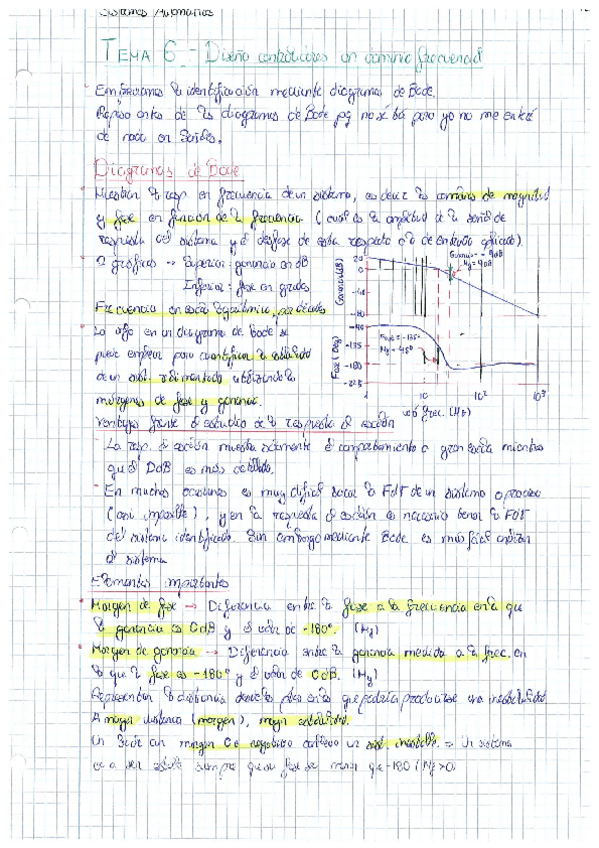 Sistemas Automáticos
TEMA 6.- Diseño controladores en dominio frecuencial
Empezamos la identificación mediante diagramas de Bode.
Repaso antes de los diagramas de Bode pq no sé tú pero yo no me enteré
de nada en Señales.
Diagramas de Bode
Muestran la resp. en frecuencia de un sistema, es decir los cambios de magnitud
y fase en función de la frecuencia (cual es la amplitud de la señal de
respuesta del sistema y el desfase de esta respecto a la de entrada aplicada).
2 gráficas → Superior: ganancia en dB
Inferior: fase en grados
Frecuencia en escala logarítmica, por décadas
La info en un diagrama de bode se
puede emplear para cuantificar la estabilidad
de un sist. realimentado utilizando los
márgenes de fase y ganancia.
Ganancia (dB)
20
0
-40
-80
Mg = 9dB
Fase (Deg)
-45
-90
-135
-180
-225
Fase = -135°
Mf = 45°
1
10
10²
10³
frec. (Hz)
Ventajas frente al estudio de la respuesta al escalón
La resp. al escalón muestra solamente el comportamiento a gran escala mientras
que el DdB es más detallado.
En muchas ocasiones es muy difícil sacar la FdT de un sistema o proceso
(casi imposible), y en la respuesta al escalón es necesario tener la FdT
del sistema identificado. Sin embargo mediante Bode es más fácil analizar
el sistema
Elementos importantes
Margen de fase → Diferencia entre la fase a la frecuencia en la que
la ganancia es 0dB y el valor de -180°. (Mf)
Margen de ganancia → Diferencia entre la ganancia medida a la frec. en
la que la fase es -180° y el valor de 0dB. (Mg)
Representan la distancia desde los puntos que podría producirse una inestabilidad
A mayor distancia (margen), mayor estabilidad.
Un Bode con margen de negativo sistema inestable. = Un sistema
va a ser estable siempre que su fase sea menor que -180 (Mf>0)